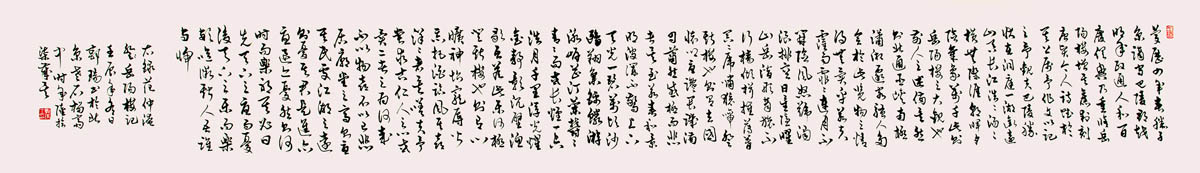 慶曆四年春滕子
京謫守巴陵郡越
明年政通人和百
廢俱興乃重修岳
陽樓增其舊制刻
唐賢今人詩賦於
其上屬予作文以記
之予觀夫巴陵勝
狀在洞庭一湖銜遠
山吞長江浩浩湯
湯橫無際涯朝暉夕
陰氣象萬千此則
岳陽樓之大觀也
前人之述備矣然
則北通巫峽南極
瀟湘遷客騷人多
會於此覽物之情
得無異乎若夫
霪雨霏霏連月不
開陰風怒號濁
浪排空日星隱曜
山岳潛形商旅不
行檣傾楫摧薄暮
冥冥虎嘯猿啼登
斯樓也則有去國
懷鄉憂讒畏譏滿
目蕭然感極而悲
者矣至若春和景
明波瀾不驚上下
天光一碧萬頃沙
鷗翔集錦鱗游
泳岸芷汀蘭郁郁
青青而或長煙一空
皓月千里浮光耀
金靜影沉璧漁
歌互答此樂何極
登斯樓也則有心
曠神怡寵辱偕
忘把酒臨風其喜
洋洋者矣嗟夫予
嘗求古仁人之心或
異二者之為何哉
不以物喜不以己悲
居廟堂之高則憂
其民處江湖之遠
則憂其君是進亦
憂退亦憂然則何
時而樂耶其必曰
先天下之憂而憂
後天下之樂而樂
歟噫微斯人吾誰
與歸
右錄范仲淹
岳陽樓記
壬辰年冬月